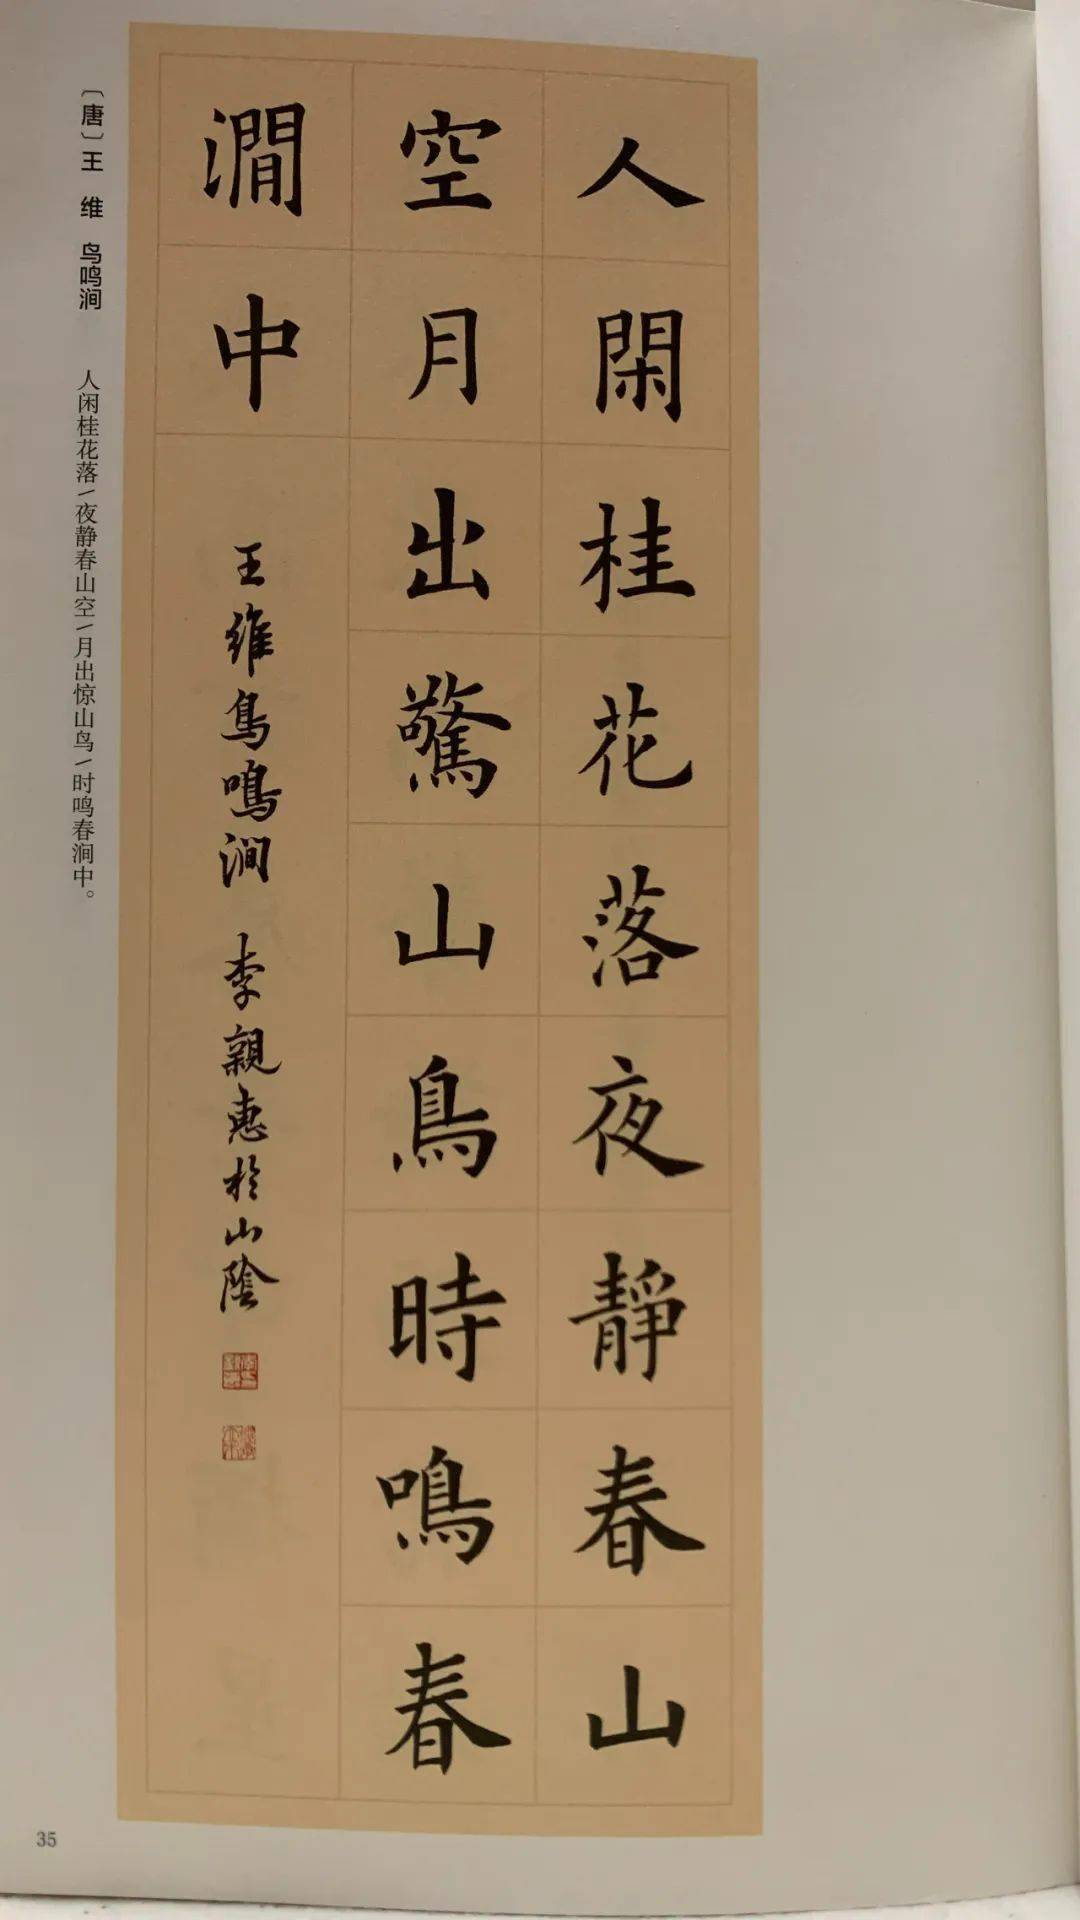 人閑桂花落夜靜春山
空月出驚山鳥時鳴春
澗中
王維鳥鳴澗 李親惠於山陰
〔唐〕王 维 鸟鸣涧 人闲桂花落/夜静春山空/月出惊山鸟/时鸣春涧中。
35